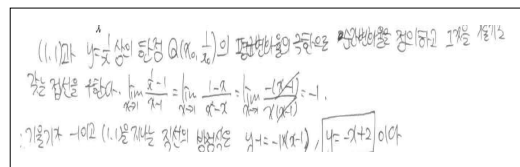 (1,1)과 y=1/x 상의 한 점 Q(x₀, 1/x₀)의 평균변화율의 극한으로 순간변화율을 정의하고 그것을 기울기로
갖는 접선을 구한다. lim_{x→1} (1/x - 1)/(x-1) = lim_{x→1} (1-x)/(x²-x) = lim_{x→1} -(x-1)/(x(x-1)) = -1.
∴ 기울기가 -1이고 (1,1)을 지나는 직선의 방정식은 y-1=-1×(x-1), y=-x+2 이다